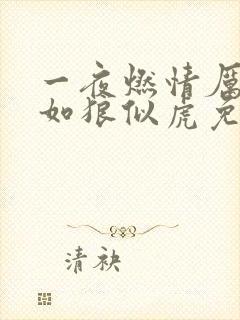 一夜燃情厉
如狼似虎免
清袂